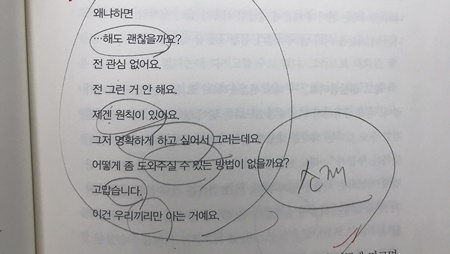 왜냐하면
…해도 괜찮을까요?
전 관심 없어요.
전 그런 거 안 해요.
제겐 원칙이 있어요.
그저 명확하게 하고 싶어서 그러는데요.
어떻게 좀 도와주실 수 있는 방법이 없을까요?
고맙습니다.
이건 우리끼리만 아는 거예요.